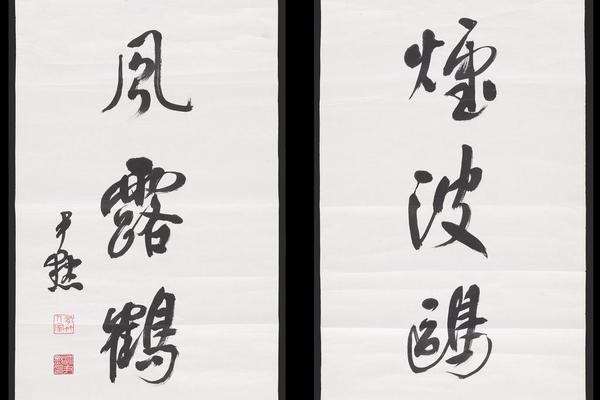 煙波鷗
風露鶴
尹默